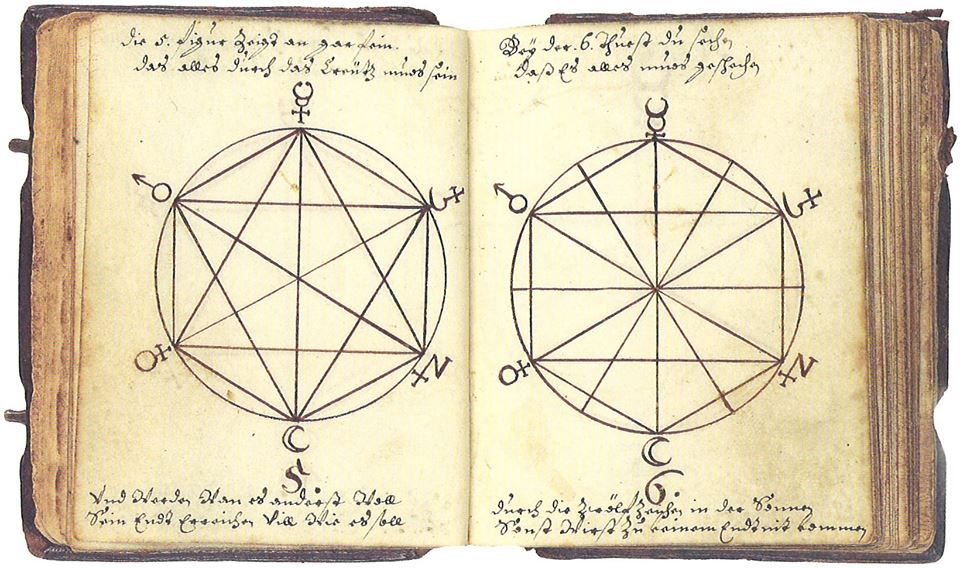 die 5. figur Zeigt an gar fein.
das alles durch das Creütz mues sein
5.
Vnd Werden Wan es anderst Woll
Sein Endt Erreichen Vill Wie es soll
Beÿ der. 6. Thuest du sechen
Daß Es alles mues geschechen
6.
durch die Zwölf Zeichen in der Sonnen
Sonst Wirst Zu keinem Endt nit kommen